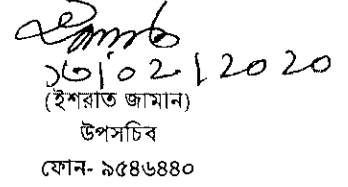 ১৩/০২/২০২০
(ইশরাত জামান)
উপসচিব
ফোন- ৯৫৪৬৪৪০